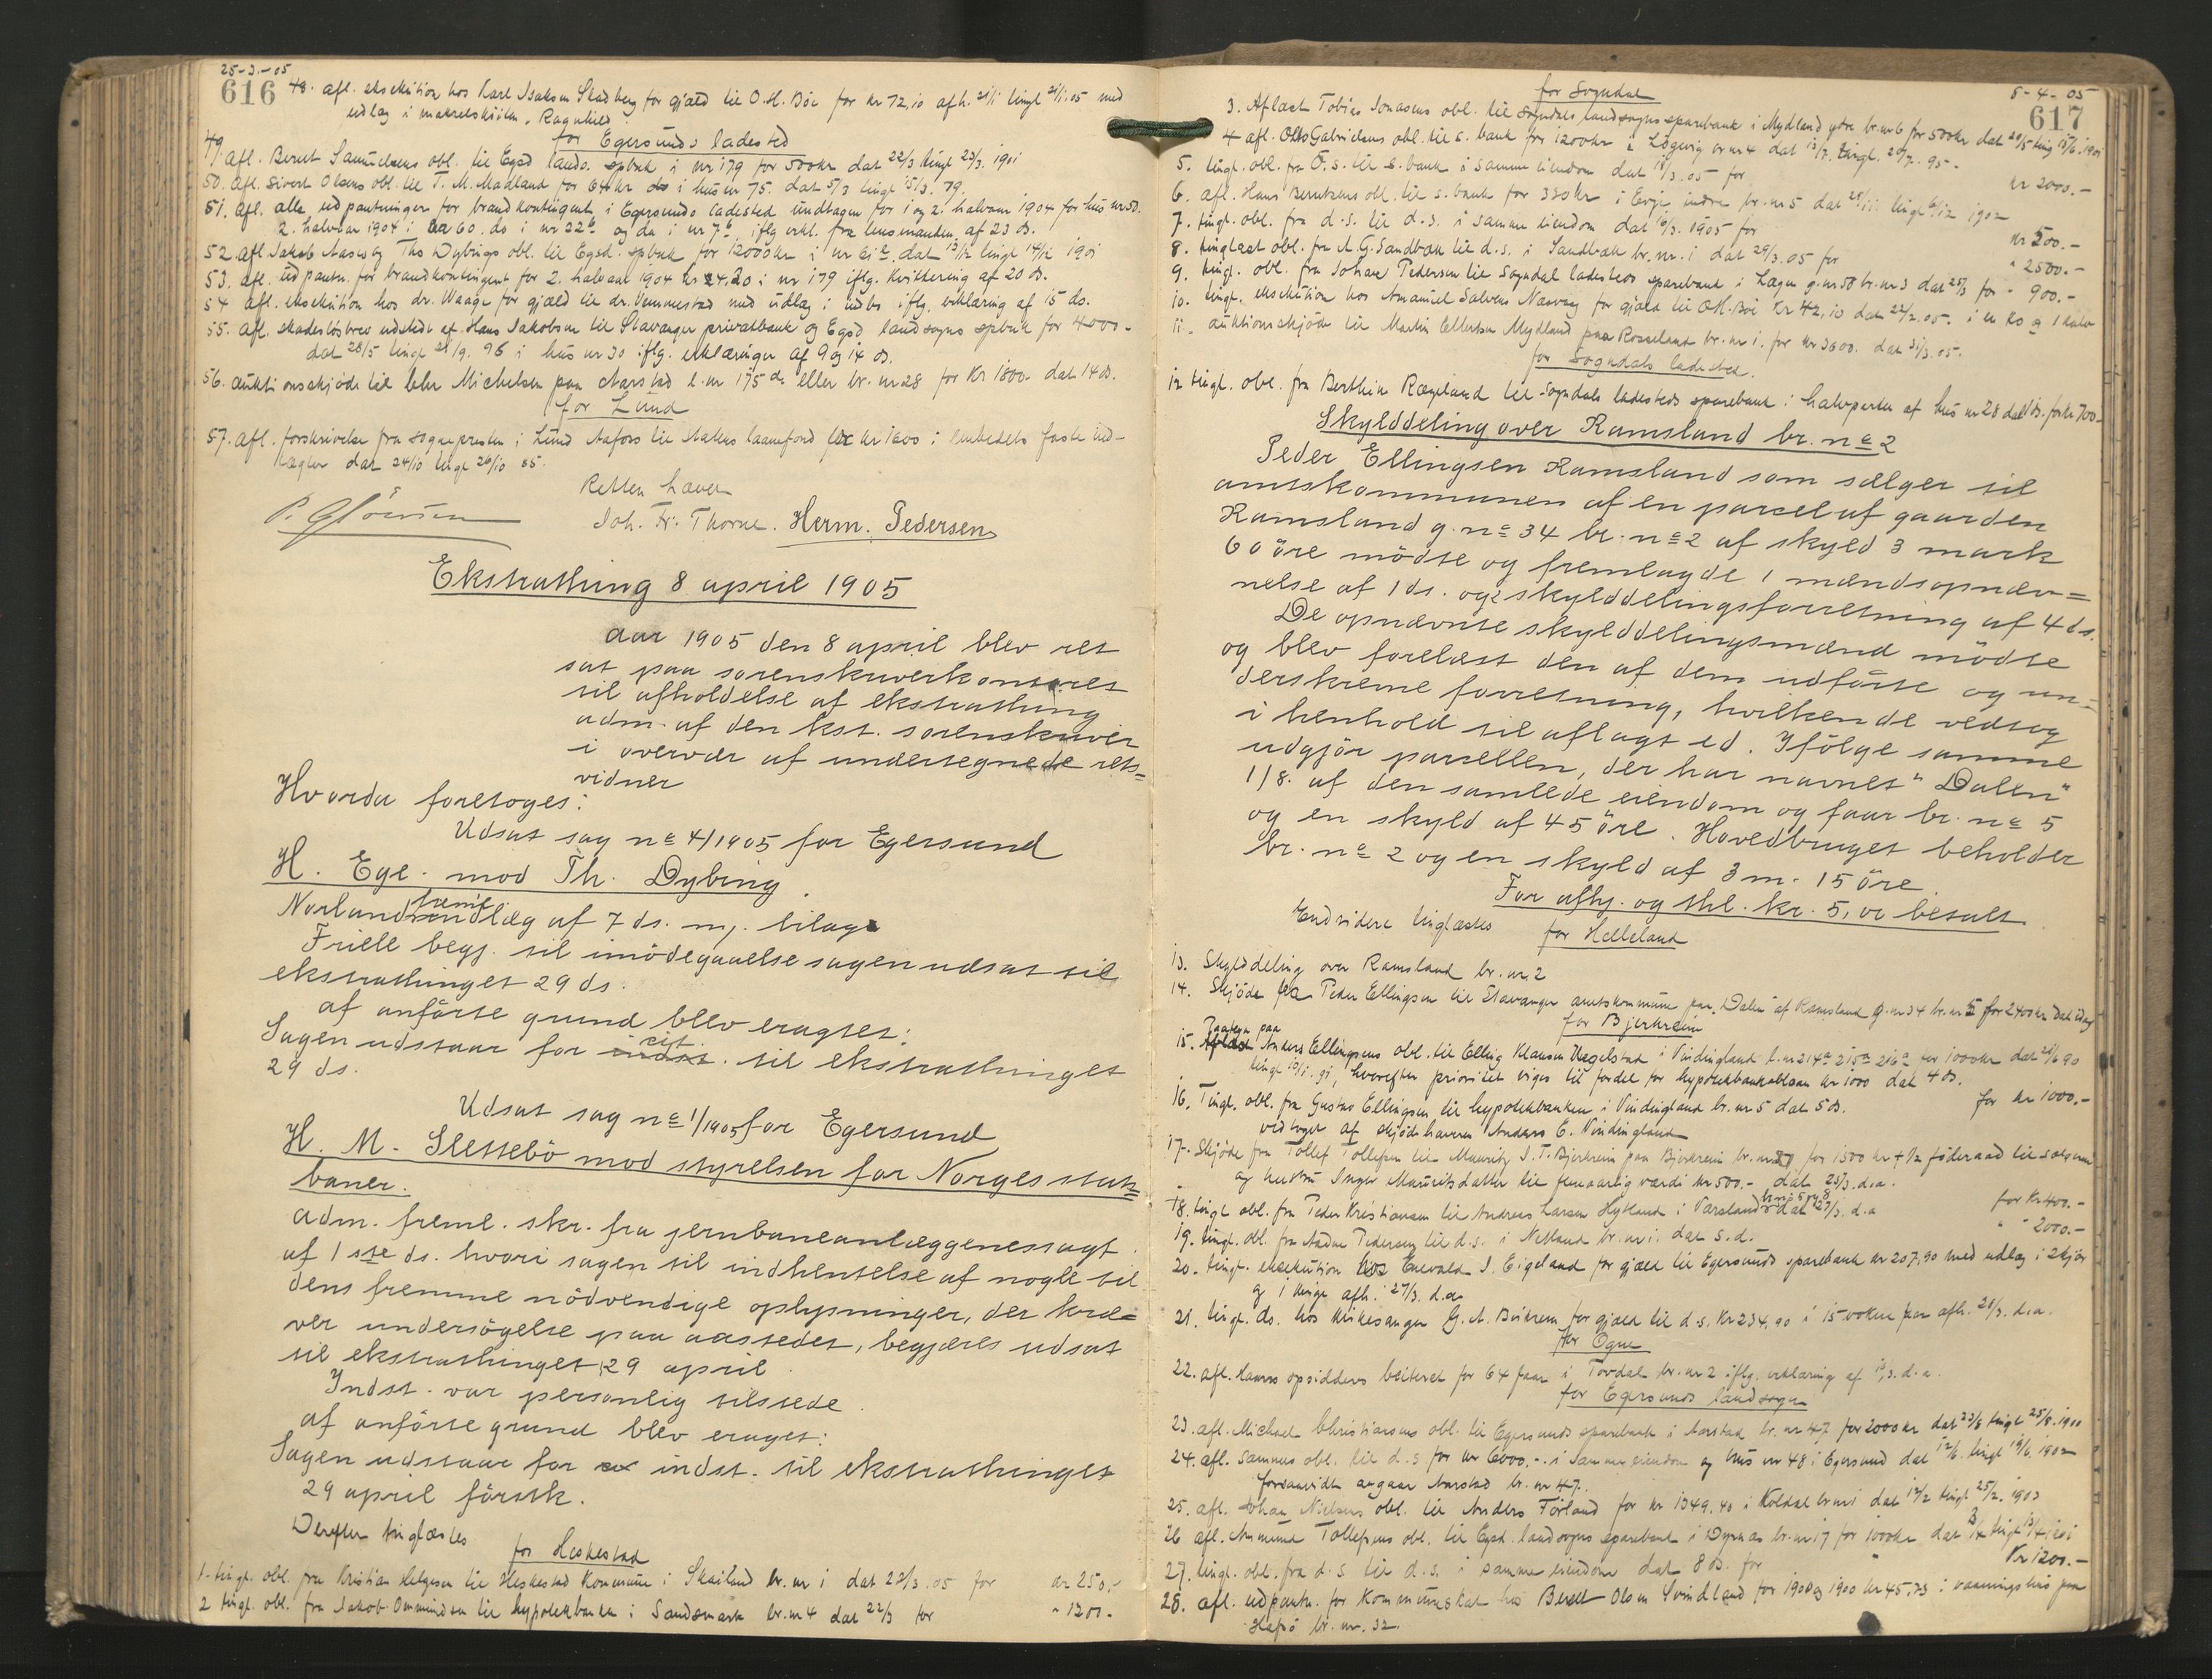 25-3-05
616
48. afl. eksekution hos Karl Isaksen Skadberg for gjæld til O. H. Böe for kr 72,10 afh. 21/1 tingl 21/1.05 med
udlæg i makrelskøiten "Ragnhild"
for Egersunds ladested
49. afl. Bernt Samuelsens obl. til Egsd lands. spbnk i nr 179 for 500kr dat 22/3 tingl 23/3. 1901
50. afl. Sivert Olsens obl. til T. M. Madland for 64kr i hus nr 75. dat 5/3 tingl 15/3. 79.
51. afl. alle udpantninger for brandkontingent i Egersunds ladested undtagen for 1 og 2. halvaar 1904 for hus nr 50.
2. halvaar 1904 i 60. do i nr 22 b og do i nr 7 b, iflg erkl. fra lensmanden af 23 ds.
52. afl. Jakob Aase og Ths Dybings obl. til Egsd. spbnk for 12000kr i nr 61 a. dat 13/12 tingl 14/12 1901
53. afl. udpantn. for brandkontingent for 2. halvaar 1904 kr 24.20 i nr 179 iflg. kvittering af 20 ds.
54 afl. eksekution hos dr. Waage for gjæld til dr. Vennestad med udlæg i indbo iflg. erklæring af 15 ds.
55. afl. skadesløsbrev udstedt af Hans Jakobsen til Stavanger privatbank og Egsd landsogns spbnk for 4000-
dat 28/5 tingl 21/9. 96 i hus nr 30 iflg. erklæringer af 9 og 14 ds.
56. auktionsskjöde til Chr Michelsen paa Aarstad l.nr 175 d. eller br. nr 28 for kr 1800- dat 14 ds.
for Lund
57. afl. forskrivelse fra sognepresten i Lund Aafoss til Statens laanefond for kr 1600 i embedets faste ind-
tægter dat 24/10 tingl 26/10 85.
Retten hævet
Joh. Fr. Thorne. Herm. Pedersen
Ekstrathing 8 april 1905
Aar 1905 den 8 april blev ret
sat paa sorenskriverkontoret
til afholdelse af ekstrathing
adm. af den kst. sorenskriver
i overvær af undertegnede rets=
vidner
Hvorda foretoges:
Udsat sag n° 4/1905 for Egersund
H. Ege. mod Th. Dybing.
Norland fremlæg af 7 ds. m. bilag
Friele begj. til imødegaaelse sagen udsat til
ekstrathinget 29 ds.
Af anförte grund blev eragtet:
Sagen udstaar for cit. til ekstrathinget
29 ds.
Udsat sag n° 1/1905 for Egersund
H. M. Slettebö mod styrelsen for Norges stats=
baner.
Adm. freml. skr. fra jernbaneanlæggenes sagf.
af 1ste ds. hvori sagen til indhentelse af nogle til
dens fremme nödvendige oplysninger, der kræ=
ver undersögelse paa aastedet, begjæres udsat
til ekstrathinget 29 april.
Indst. var personlig tilstede.
Af anförte grund blev eraget:
Sagen udstaar for indst. til ekstrathinget
29 april förstk.
Derefter tinglæstes
for Heskestad
1. tingl. obl. fra Kristian Helgesen til Heskestad Kommune i Skailand br. nr 1 dat 22/3 .05 for kr 250.-
2 tingl. obl. fra Jakob Ommundsen til hypotekbanken i Sandsmark br. nr 4 dat 22/3 for " 1300-
8-4-05
617
for Sogndal
3. Aflæst Tobias Jonassens obl. til Sogndals landsogns sparebank i Mydland ytre br. nr 6 for 500kr dat 29/5 ting 15/6. 1901
4 afl. Olts Gabrielsens obl. til s. bank for 1200kr i Lögevig br nr 4 dat 13/7. tingl. 20/7. 95.
5. tingl. obl. fra O. S. til s. bank i samme eiendom dat 18/3.05 for kr 2000.-
6. afl. Hans Berntsens obl. til s. bank for 330kr i Evje indre br. nr 5 dat 28/11 tingl 6/12 1902
7. tingl. obl. fra d.s. til d.s. i samme eiendom dat 16/3. 1905 for kr 500.-
8. tinglæst obl. fra A. G. Sandbæk til d.s. i Sandbæk br. nr. 1 dat 29/3.05 for " 2500.-
9. tingl. obl. fra Johan Pedersen til Sogndal ladesteds sparebank i Lægn g. nr 50 br. nr 3 dat 25/3 for " 900.-
10. tingl. eksekution hos Amaniel Salves Næsvaag for gjæld til O.H. Böe kr 42,10 dat 22/2.05. i en ko og 1 kalv
11. auktionsskjöde til Martin Ellertsen Mydland paa Rosseland br. nr 1. for kr 3600. dat 31/3.05.
for Sogndals ladested.
12 tingl. obl. fra Berthin Rægeland til Sogndals ladesteds sparebank i halvparten af hus nr 28 dat ds. for kr 700-
Skylddeling over Ramsland br. n° 2
Peder Ellingsen Ramsland som sælger til
amtskommunen af en parcel af gaarden
Ramsland g. n° 34 br. n° 2 af skyld 3 mark
60 öre mödte og fremlagde 1 mændsopnæv=
nelse af 1 ds. og 2 skylddelingsforretning af 4 ds.
De opnævnte skylddelingsmænd mödte
og blev forelæst den af dem udförte og un=
derskrevne forretning, hvilken de vedtog
i henhold til aflagt ed. Ifölge samme
udgjör parcellen, der har navnet "Dalen"
1/8. af den samlede eiendom og faar br. n° 5
og en skyld af 45 öre. Hovedbruget beholder
br. n° 2 og en skyld af 3 m. 15 öre.
For afhj. og thl. kr. 5,00 betalt
Endvidere tinglæstes
for Helleland
13. Skylddeling over Ramsland br. nr. 2
14. Skjöde fra Peder Ellingsen til Stavanger amtskommune paa "Dalen" af Ramsland g. nr 34 br. nr 5 for 2400kr dat idag
for Bjerkreim
15. Paategn paa Anders Ellingsens obl. til Elling Klausen Hegelstad i Vindingland l. nr 214a 215a 216a for 1000kr dat 28/6 90
tingl 13/1. 91, hvorefter prioritet viges til fordel for hypotekbanklaan kr 1000 dat 4 ds.
16. Tingl. obl. fra Gustav Ellingsen til hypotekbanken i Vindingland br. nr 5 dat 5 ds. for kr 1000.-
vedtaget af skjödehaveren Anders E. Vindingland
17. Skjöde fra Tollef Tollefsen til Mauritz S. T. Bjerkreim paa Bjerkreim br. nr for 1500 kr + 1/2 föderaad til sælgeren
og hustru Inger Mauritsdatter til femaarlig værdi kr 500.- dat 25/3. d.a.
18. tingl obl. fra Peder Kristiansen til Andreas Larsen Hytland i Varsland br. nr 5 og 8 dat 27/3. d.a for kr 400.-
19. tingl. obl. fra Aadne Pedersen til d.s. i Netland br. nr 1. dat s.d. " " 2000.-
20. tingl. eksekution hos Enevald J. Eigeland for gjæld til Egersunds sparebank kr 207,90 med udlæg i 2 kjör
og 1 kvige afh. 27/3. d.a
21. tingl. ds. hos kirkesanger G. A. Birkrem for gjæld til d.s. kr 234,90 i 15 voksne faar afh. 28/3. d.a.
for Ogne
22. afl. Hanns opsidders beiteret for 64 faar i Tovdal br. nr 2 iflg. erklæring af 18/3. d.a.
for Egersunds landsogn
23. afl. Michael Christiansens obl. til Egersunds sparebank i Aarstad br. nr 47 for 2000kr dat 23/8 tingl 25/8. 1900
24. afl. sammes obl. til d.s for kr 6000.- i samme eiendom og hus nr 48 i Egersund dat 12/6. tingl 19/6. 1902
forsaavidt angaar Aarstad br. nr 47.
25. afl. Johan Nielsens obl. til Anders Förland for kr 1349,40 i Koldal br nr 1 dat 12/2 tingl 25/2. 1903
26 afl. Ammund Tollefsens obl. til Egsd. landsogns sparebank i Dyrnæs br. nr 17 for 1000kr dat tingl 1901
27. tingl. obl. fra d.s til d.s. i samme eiendom dat 8 ds. for kr 1200.-
28. afl. udpantn. for kommuneskat hos Berett Olsen Svindland for 1900 kr 45,73 i vaaningshus paa
Hafsö br. nr. 32.